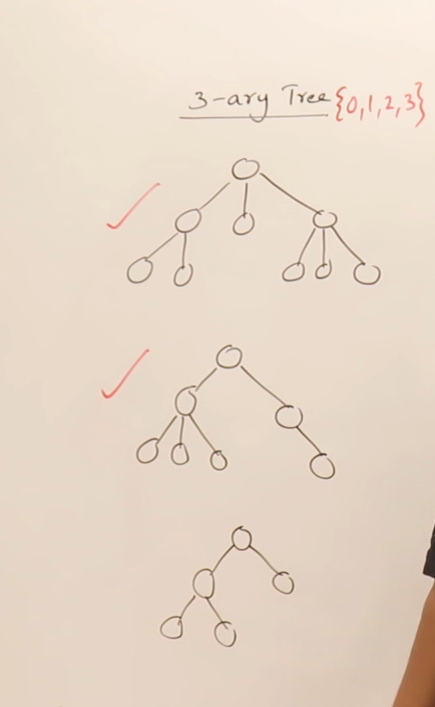 3-ary Tree {0,1,2,3}